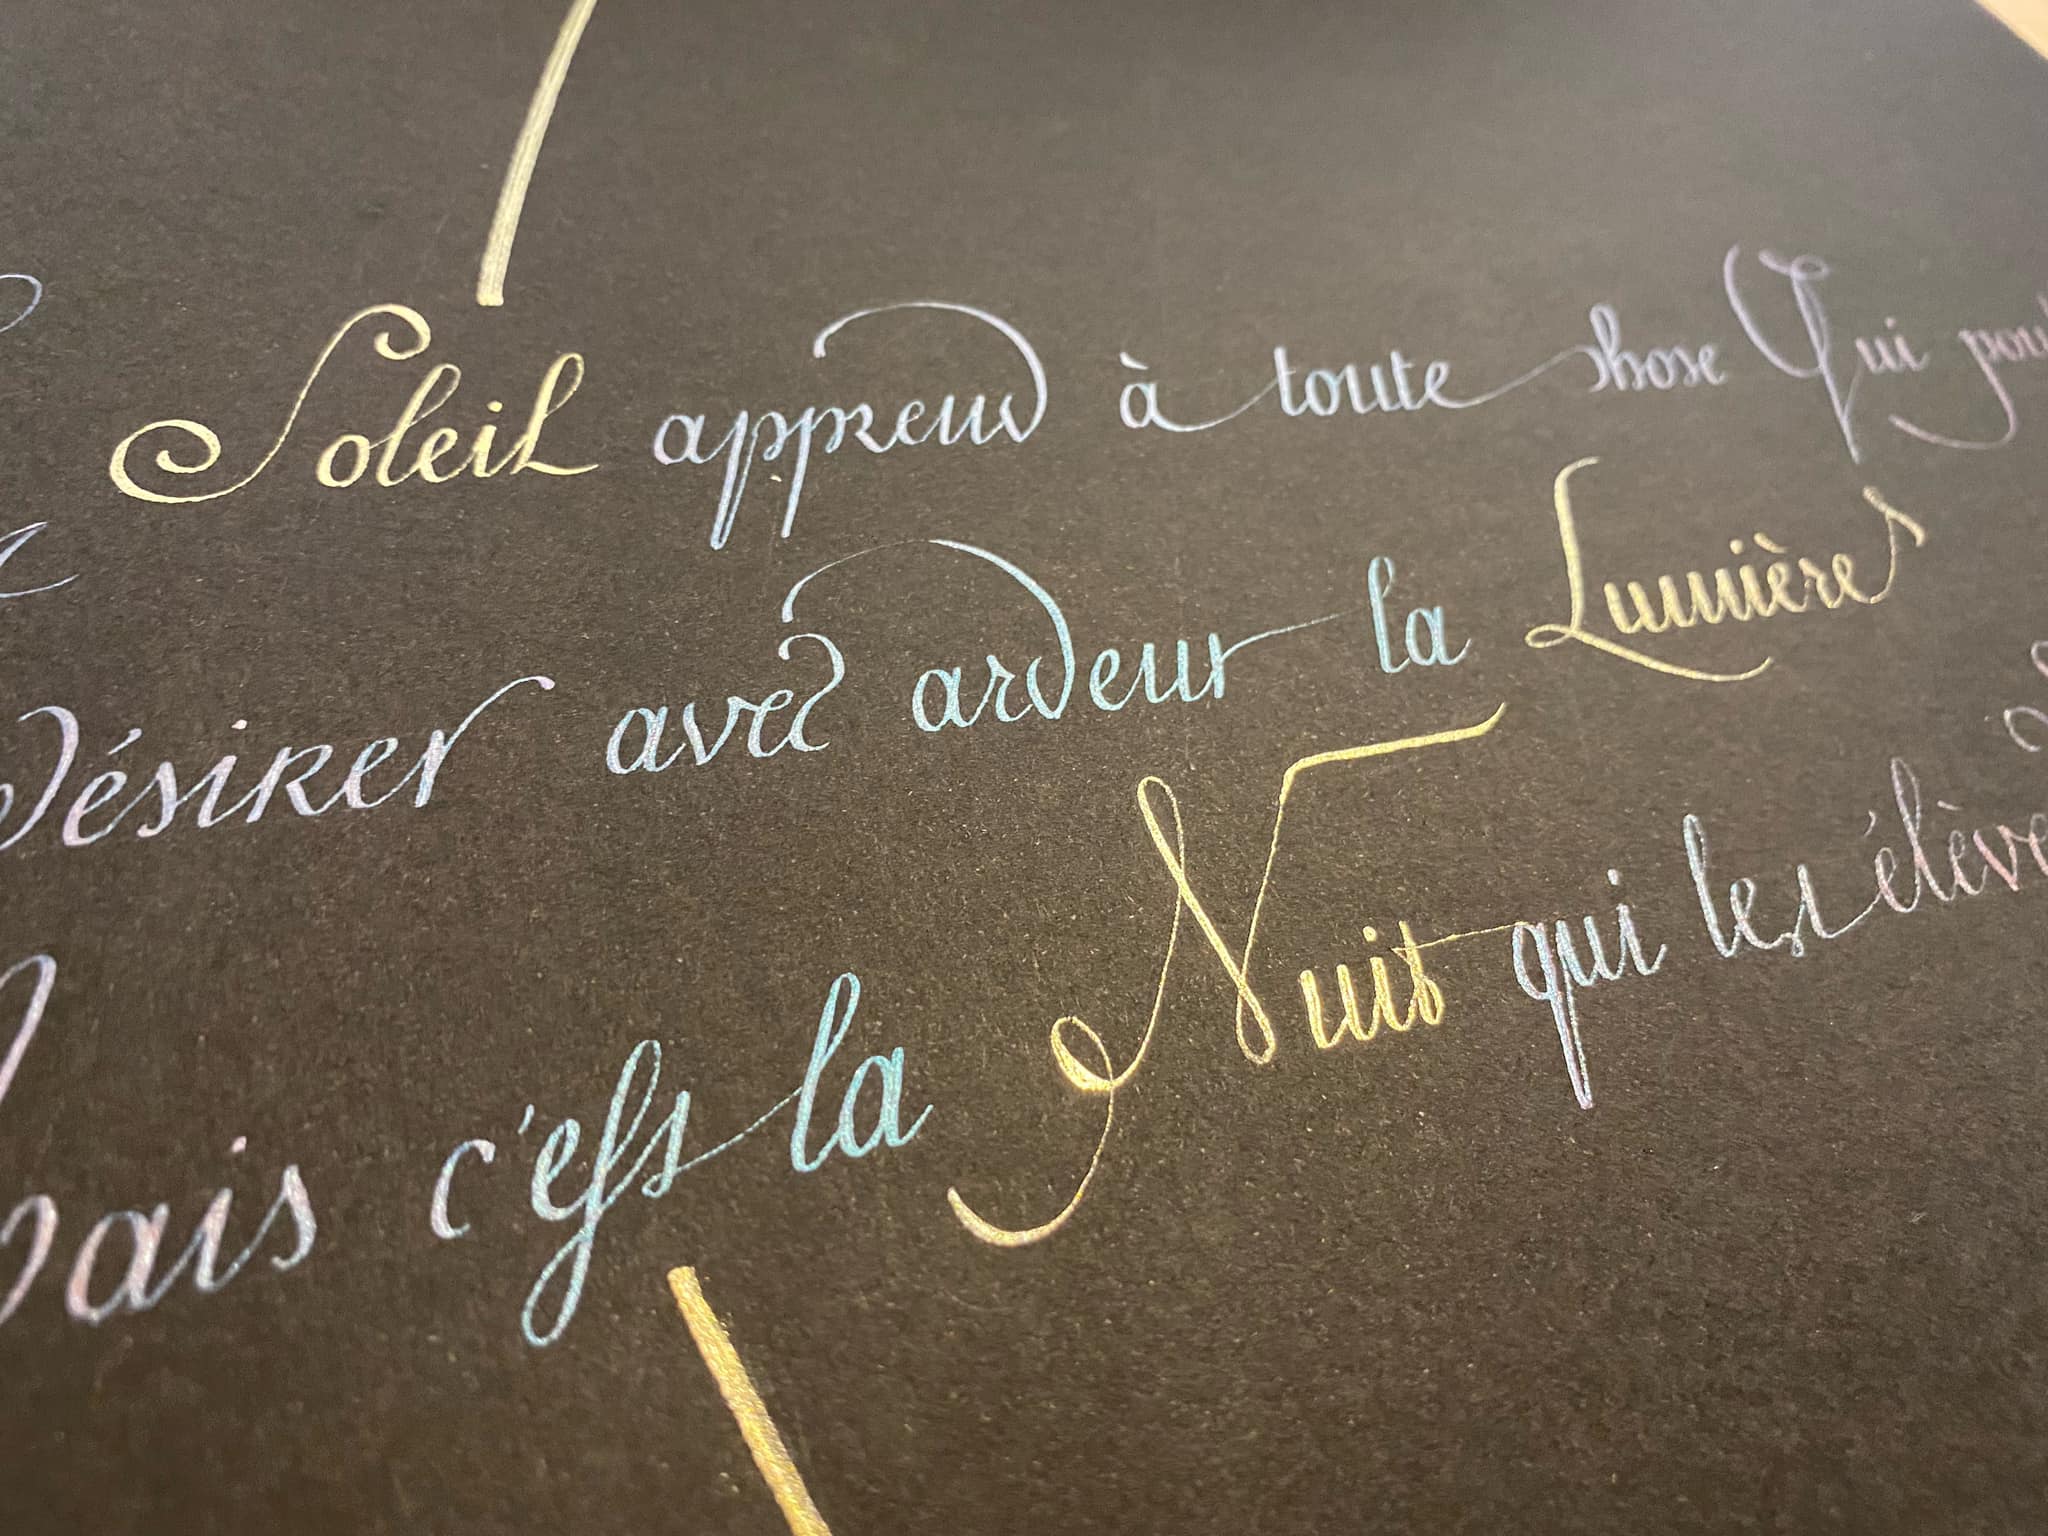 Soleil apprend à toute chose Qui pou
Désirer avec ardeur la Lumière
Mais c'est la Nuit qui les élève